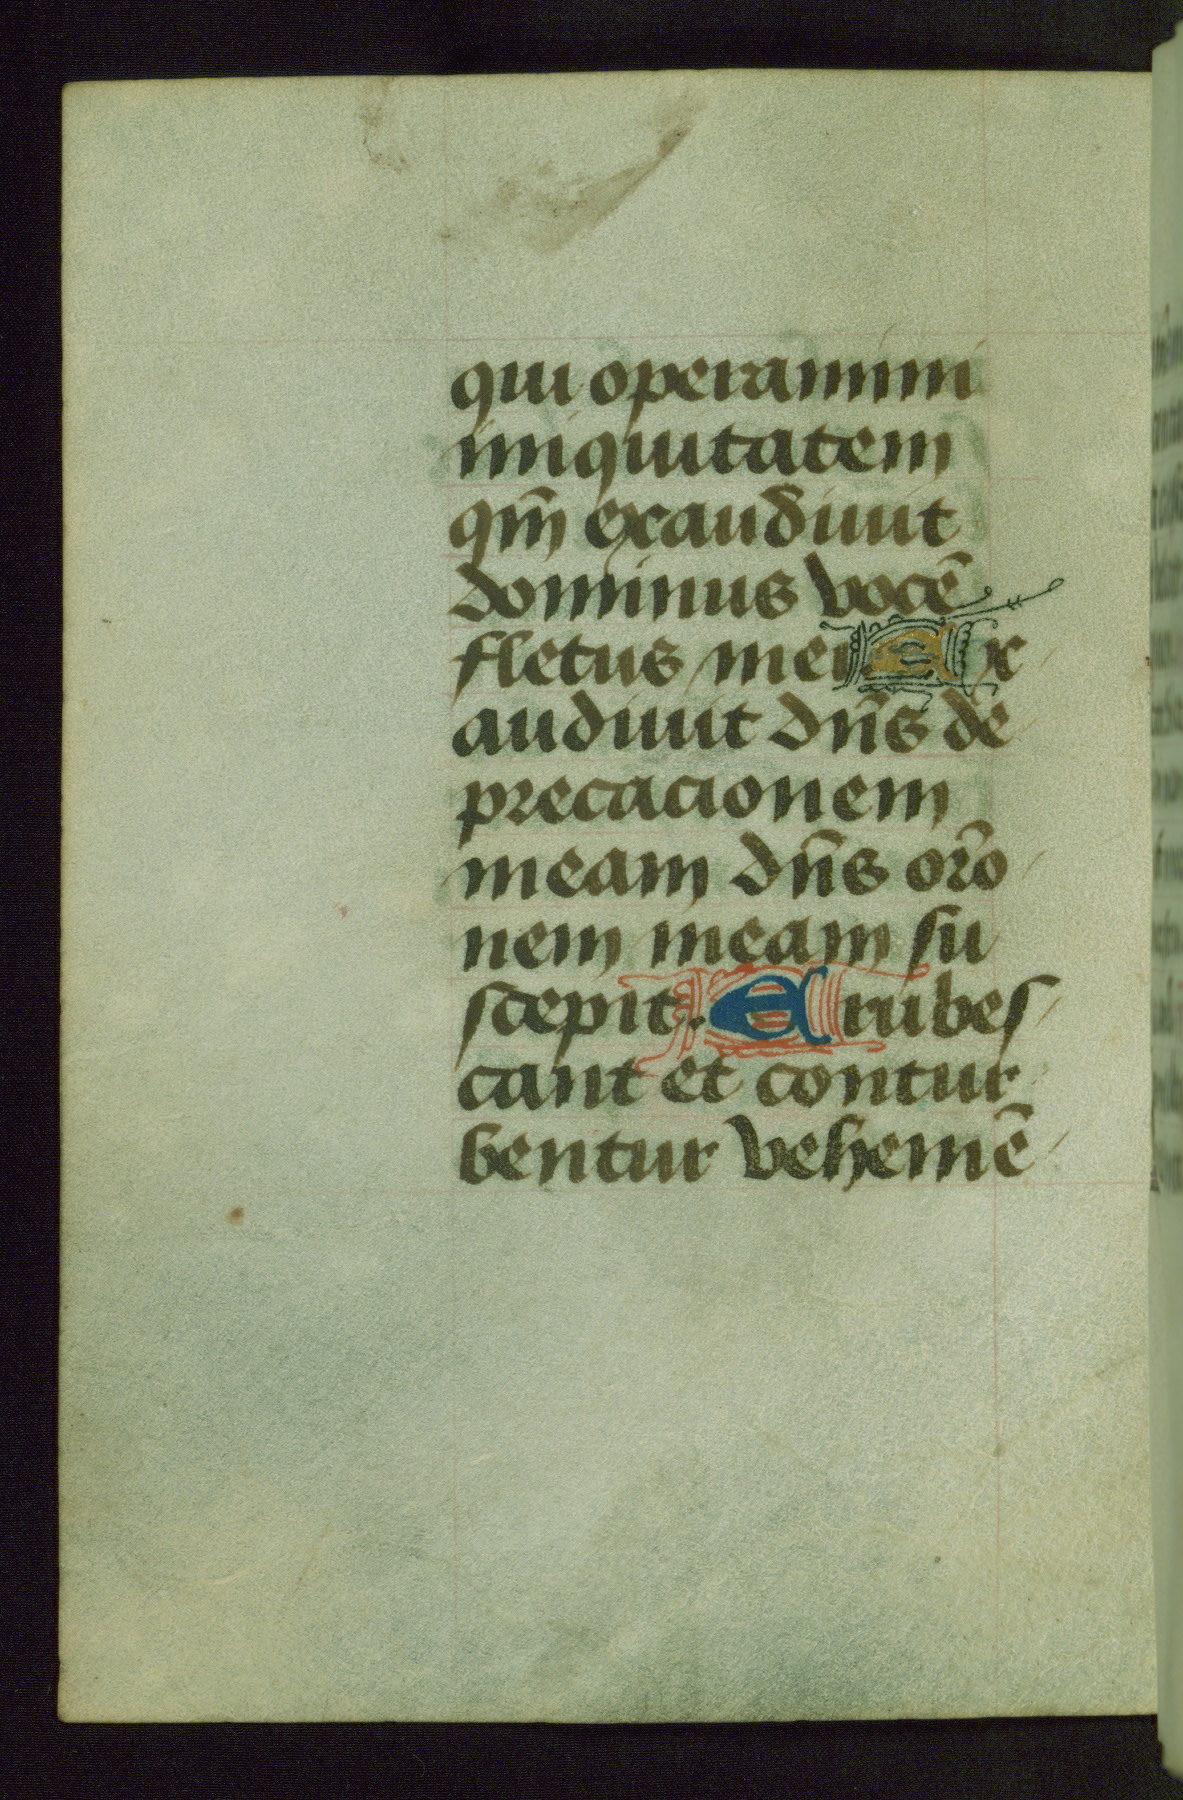 qui operamini
iniquitatem
qm̄ exaudiuit
dominus vocē
fletus mei. Ex
audiuit dn̄s de
precacionem
meam dn̄s or̄o
nem meam su
scepit. Erubes
cant et contur
bentur vehemē